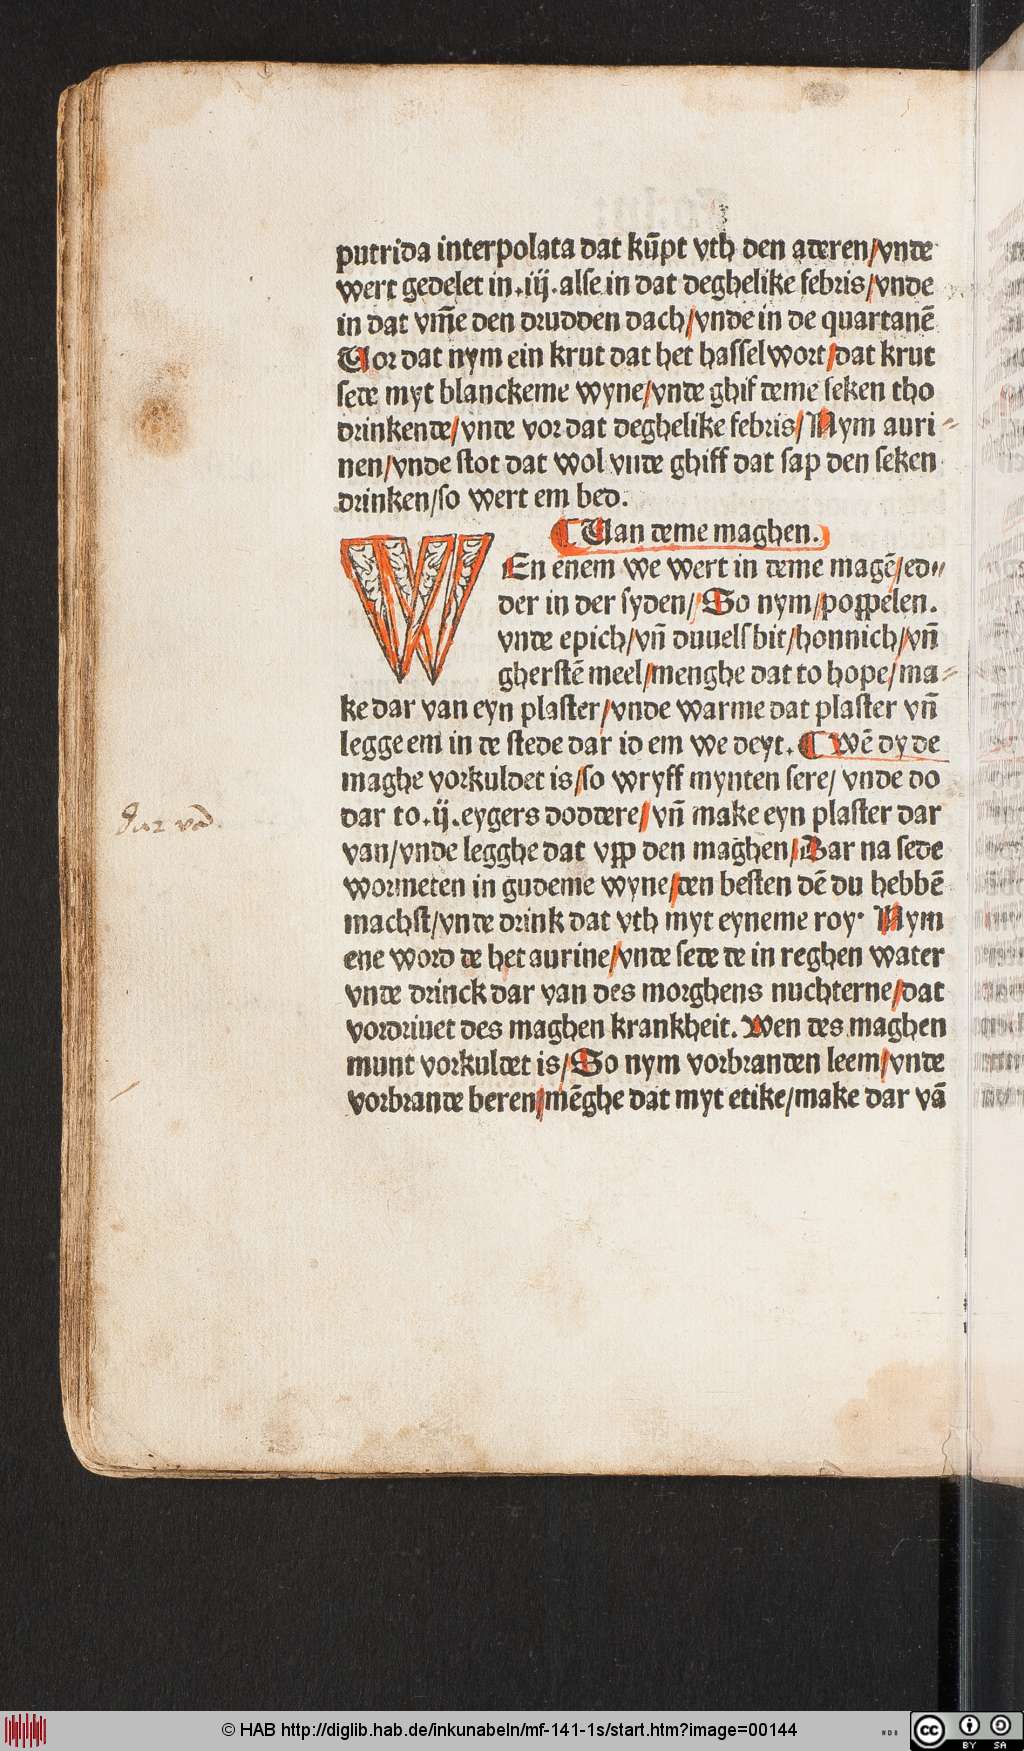 putrida interpolata dat kūpt vth den aderen/vnde
wert gedelet in .iij. alse in dat deghelike febris/vnde
in dat vm̄e den drudden dach/vnde in de quartanē
Uor dat nym ein krut dat het hasselwort/dat krut
sede myt blanckeme wyne/vnde ghif deme seken tho
drinkende/vnde vor dat deghelike febris/Nym auri⸗
nen/vnde stot dat wol vnde ghiff dat sap den seken
drinken/so wert em bed.
¶ Uan deme maghen.
WEn enem we wert in deme magē/ed⸗
der in der syden/So nym/poppelen.
vnde epich/vn̄ duuels bit/honnich/vn̄
gherstē meel/menghe dat to hope/ma⸗
ke dar van eyn plaster/vnde warme dat plaster vn̄
legge em in de stede dar id em we deyt. ¶ Wē dy de
maghe vorkuldet is/so wryff mynten sere/vnde do
dar to .ij. eygers doddere/vn̄ make eyn plaster dar
van/vnde legghe dat vpp den maghen/Dar na sede
wormeten in gudeme wyne/den besten dē du hebbē
machst/vnde drink dat vth myt eyneme roy. Nym
ene word de het aurine/vnde sede de in reghen water
vnde drinck dar van des morghens nuchterne/dat
vordriuet des maghen krankheit. Wen des maghen
munt vorkuldet is/So nym vorbranden leem/vnde
vorbrande beren/mēghe dat myt etike/make dar vā
© HAB http://diglib.hab.de/inkunabeln/mf-141-1s/start.htm?image=00144
WDB
cc BY SA